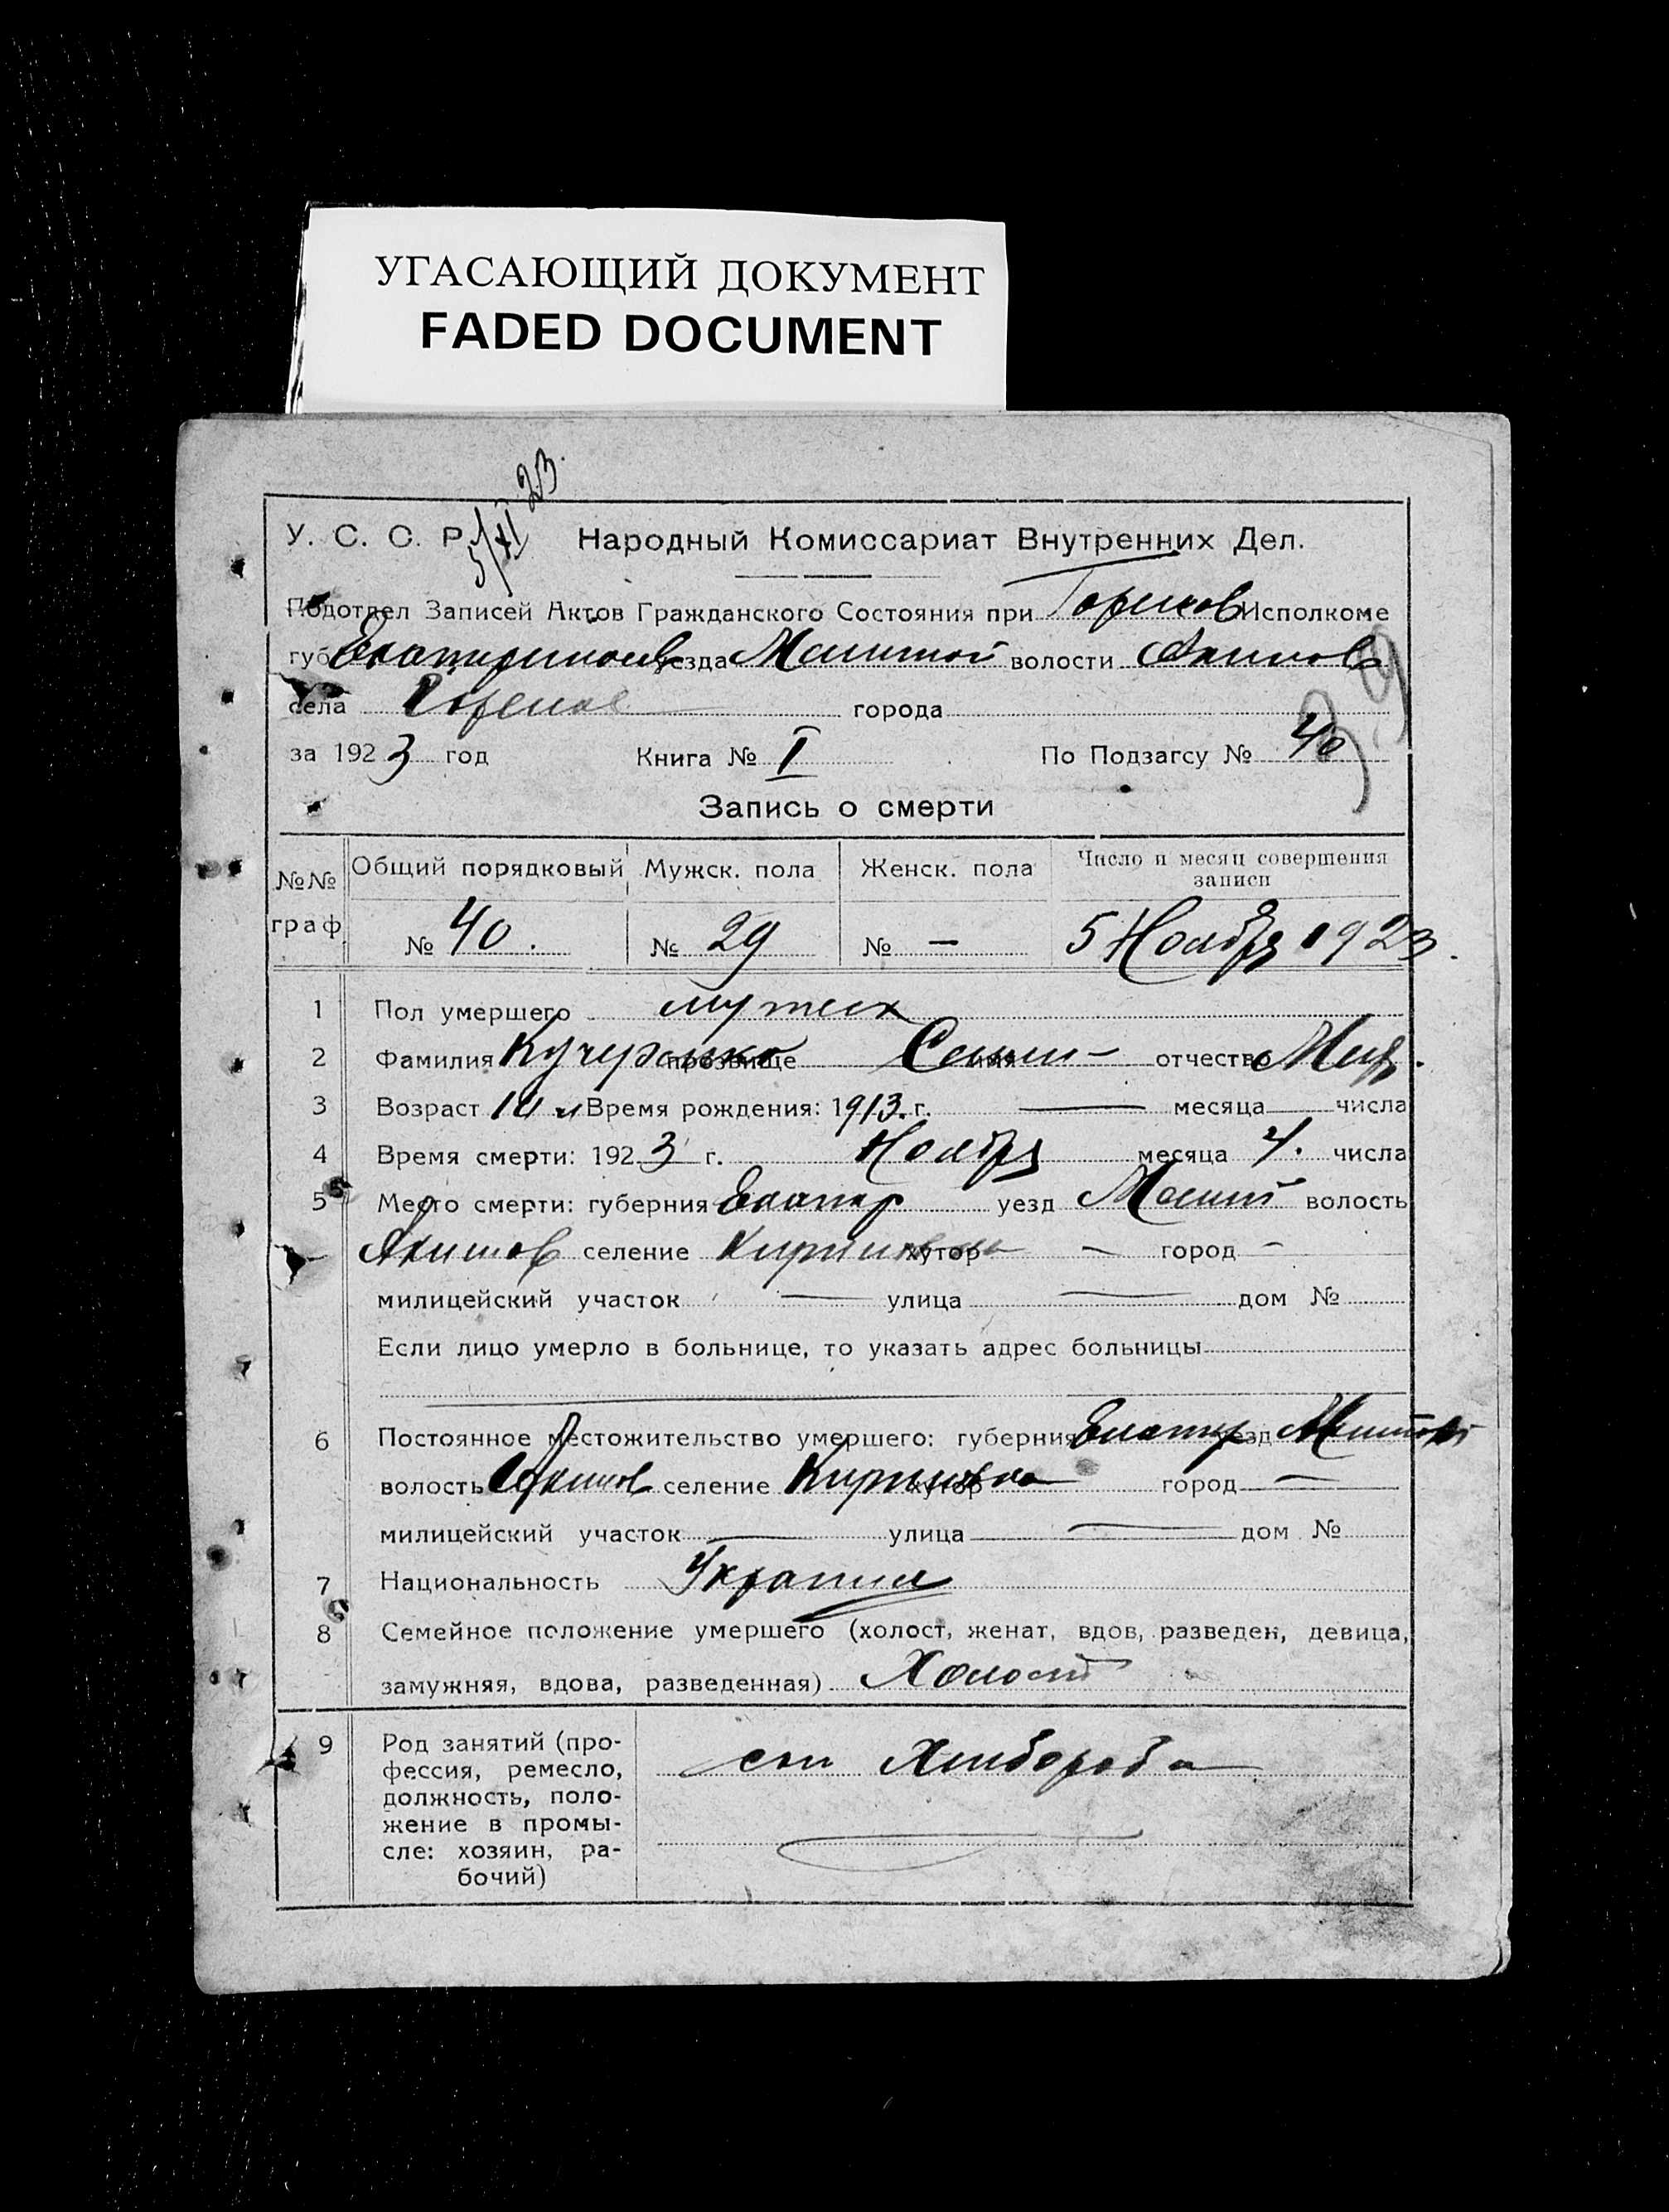 УГАСАЮЩИЙ ДОКУМЕНТ
FADED DOCUMENT
5/XI 23.
У. С. С. Р. Народный Комиссариат Внутренних Дел.
Подотдел Записей Актов Гражданского Состояния при Исполкоме
губ. Екатеринослав уезда волости
села города
за 1923 год Книга № I По Подзагсу № 40
39
Запись о смерти
№№ граф. Общий порядковый Мужск. пола Женск. пола Число и месяц совершения записи
№ 40. № 29 № — 5 Ноября 1923.
1 Пол умершего мужеск
2 Фамилия Кучеренко прозвище имя отчество
3 Возраст 10 л Время рождения: 1913. г. — месяца — числа
4 Время смерти: 1923 г. Ноября месяца 4. числа
5 Место смерти: губерния Екатер уезд Мелит волость
Акимов селение Кирпиловка хутор — город —
милицейский участок — улица — дом №
Если лицо умерло в больнице, то указать адрес больницы
6 Постоянное местожительство умершего: губерния Екатер уезд
волость Акимов селение хутор город —
милицейский участок — улица — дом №
7 Национальность Украин
8 Семейное положение умершего (холост, женат, вдов, разведен, девица,
замужняя, вдова, разведенная) Холост
9 Род занятий (про-
фессия, ремесло,
должность, поло-
жение в промы-
сле: хозяин, ра-
бочий)
сын Хлибороба